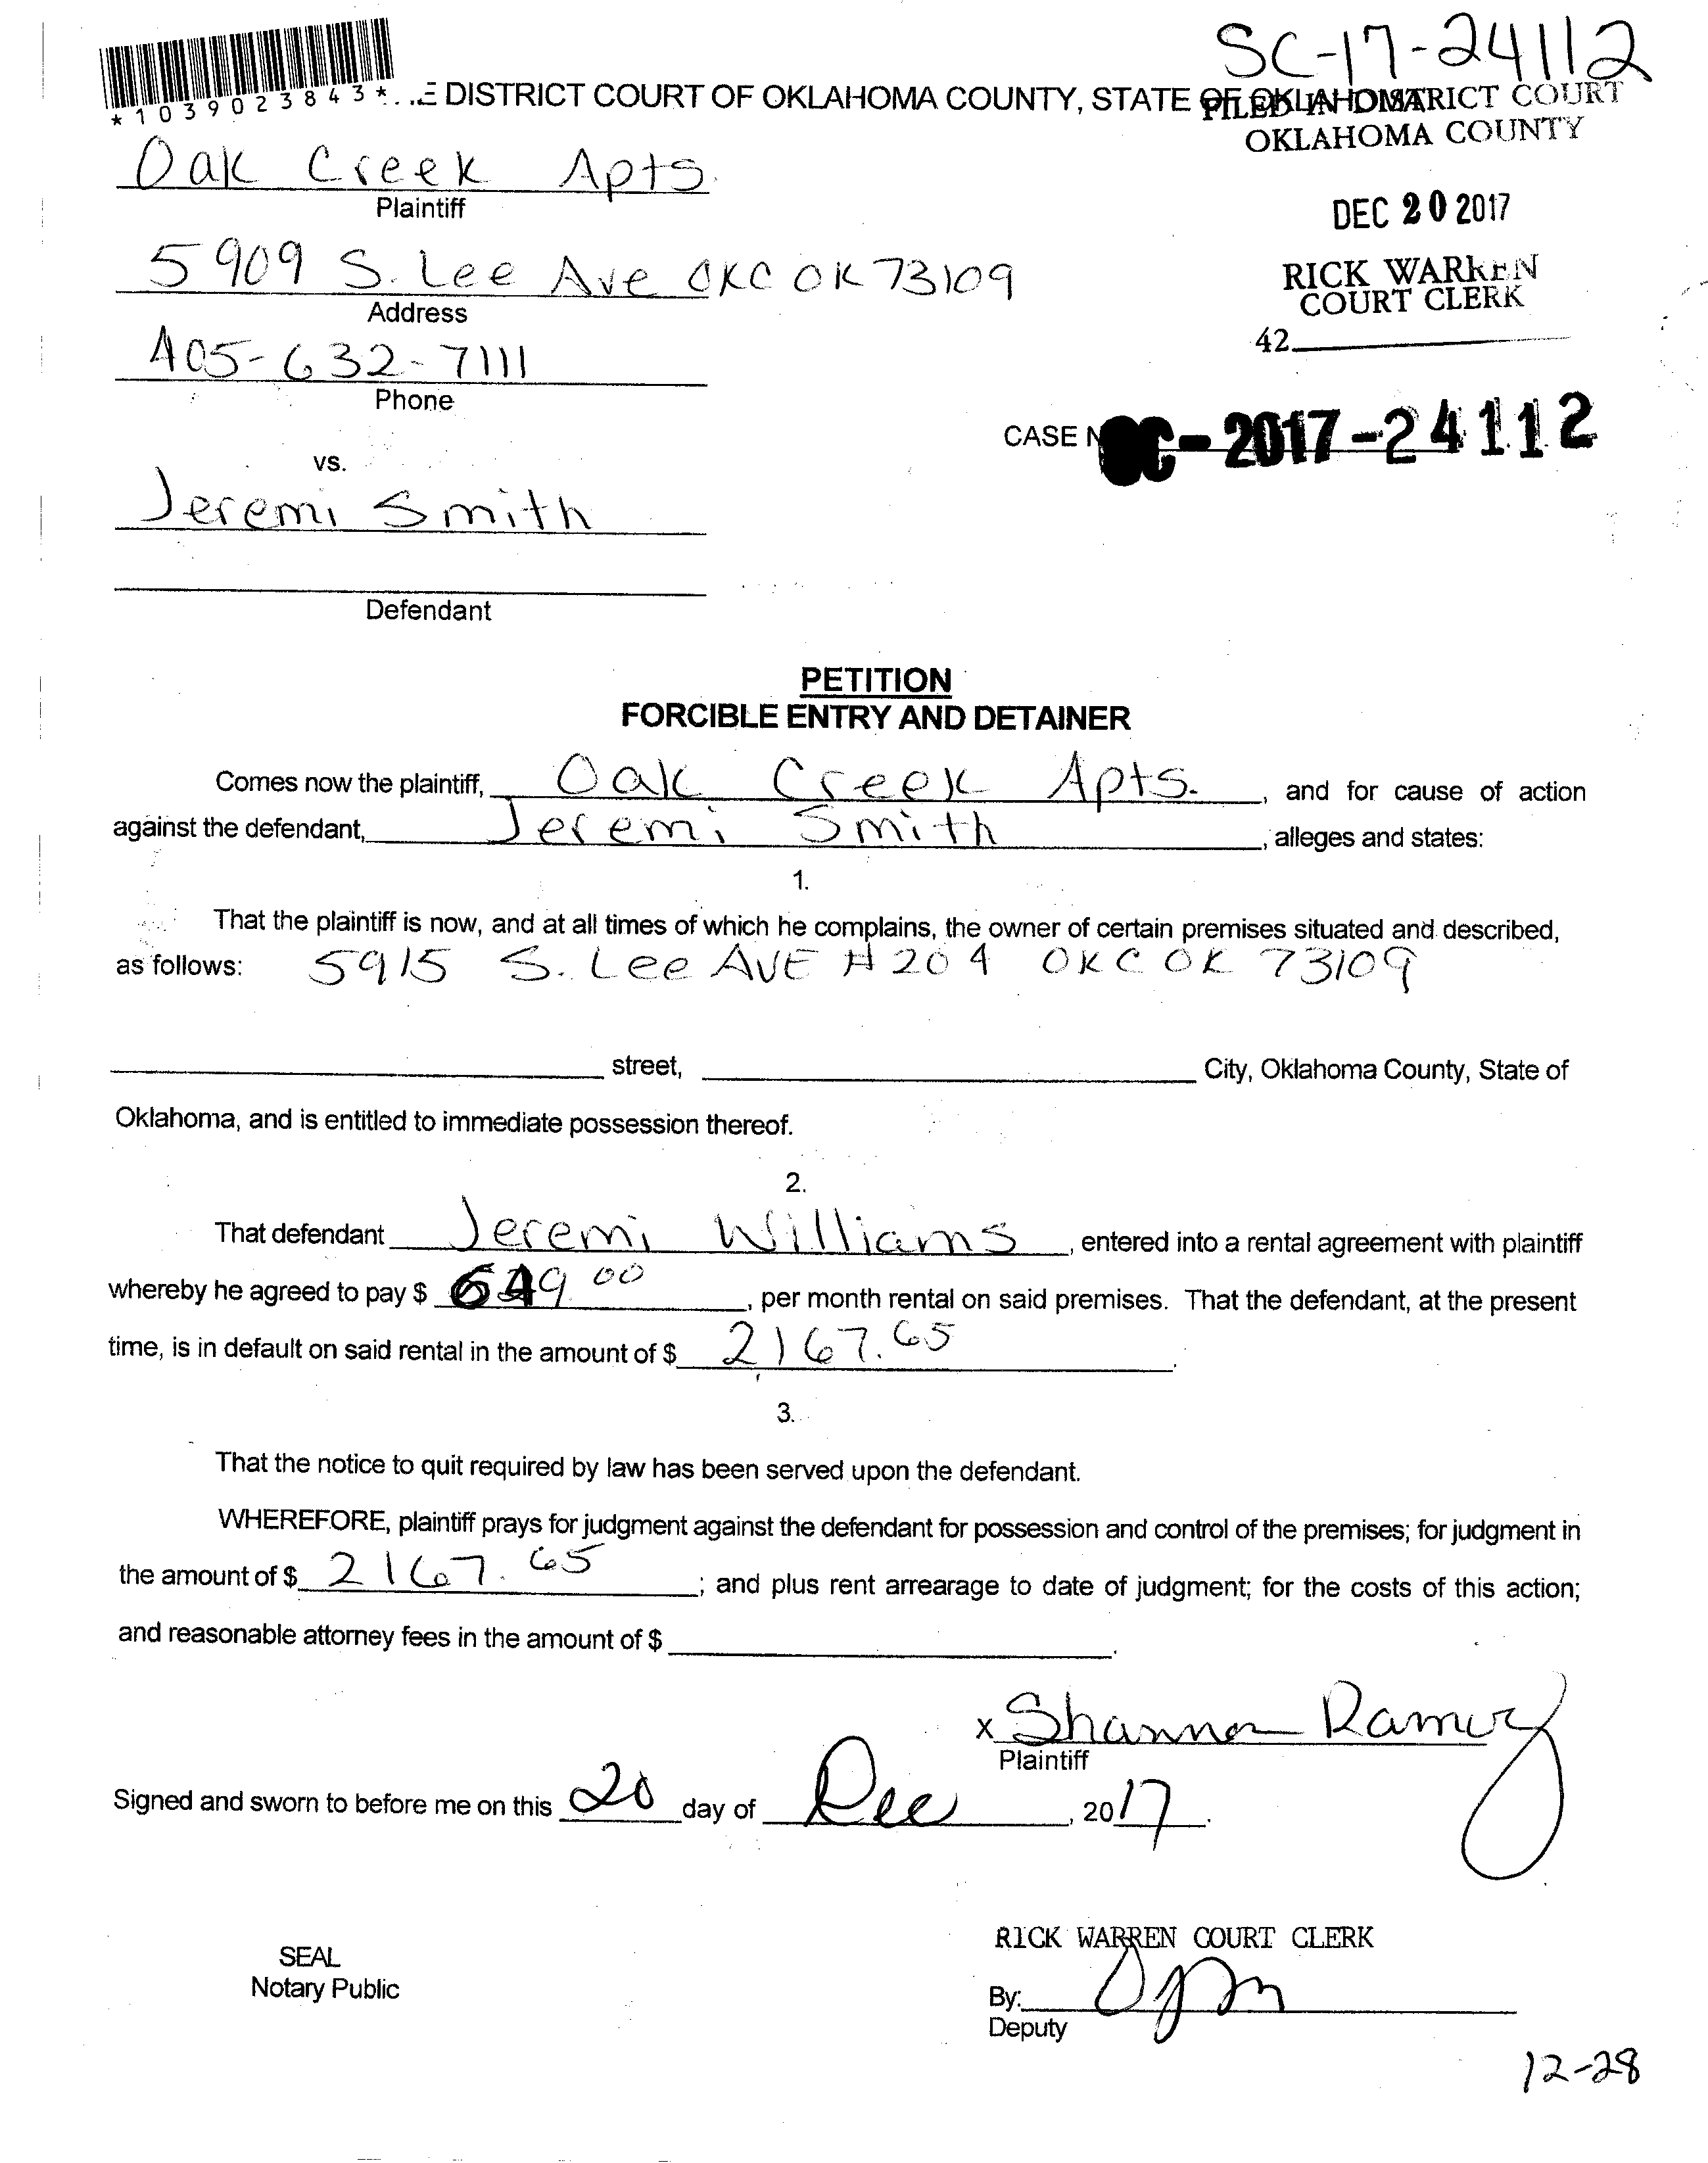 SC-17-24112
*1039023843*
E DISTRICT COURT OF OKLAHOMA COUNTY, STATE OF OKLAHOMA
FILED IN DISTRICT COURT
OKLAHOMA COUNTY
Oak Creek Apts.
Plaintiff
DEC 20 2017
5909 S. Lee Ave OKC OK 73109
Address
RICK WARREN
COURT CLERK
42
405-632-7111
Phone
CASE C-2017-24112
vs.
Jeremi Smith
Defendant
PETITION
FORCIBLE ENTRY AND DETAINER
Comes now the plaintiff, Oak Creek Apts. , and for cause of action
against the defendant, Jeremi Smith , alleges and states:
1.
That the plaintiff is now, and at all times of which he complains, the owner of certain premises situated and described,
as follows: 5915 S. Lee AVE # 204 OKC OK 73109
street, City, Oklahoma County, State of
Oklahoma, and is entitled to immediate possession thereof.
2.
That defendant Jeremi Williams , entered into a rental agreement with plaintiff
whereby he agreed to pay $ , per month rental on said premises. That the defendant, at the present
time, is in default on said rental in the amount of $ 2167.65 .
3.
That the notice to quit required by law has been served upon the defendant.
WHEREFORE, plaintiff prays for judgment against the defendant for possession and control of the premises; for judgment in
the amount of $ 2167.65 ; and plus rent arrearage to date of judgment; for the costs of this action;
and reasonable attorney fees in the amount of $ .
x Shannon Ramey
Plaintiff
Signed and sworn to before me on this 20 day of Dec , 2017.
RICK WARREN COURT CLERK
SEAL
Notary Public
By:
Deputy
12-28